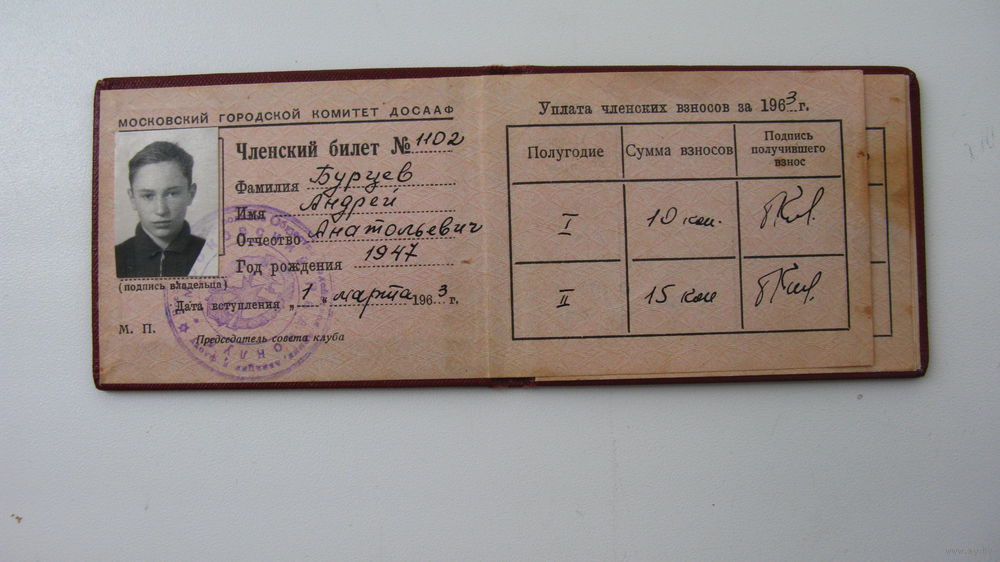 МОСКОВСКИЙ ГОРОДСКОЙ КОМИТЕТ ДОСААФ
Членский билет № 1102
Фамилия Бурцев
Имя Андрей
Отчество Анатольевич
Год рождения 1947
(подпись владельца)
Дата вступления „1" марта 1963 г.
М. П.
Председатель совета клуба
Уплата членских взносов за 1963 г.
Полугодие Сумма взносов Подпись получившего взнос
I 10 коп.
II 15 коп